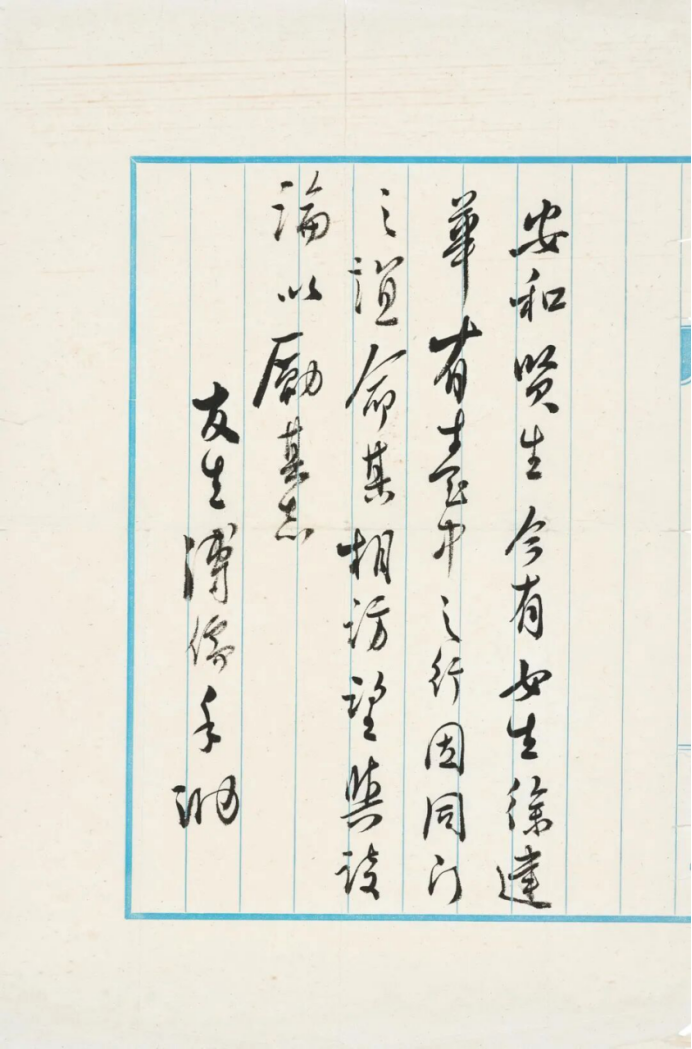 安和賢生今有女生徐達
華有臺中之行因同门
之誼命其相訪望與談
論以勵其志
友生溥儒手泐